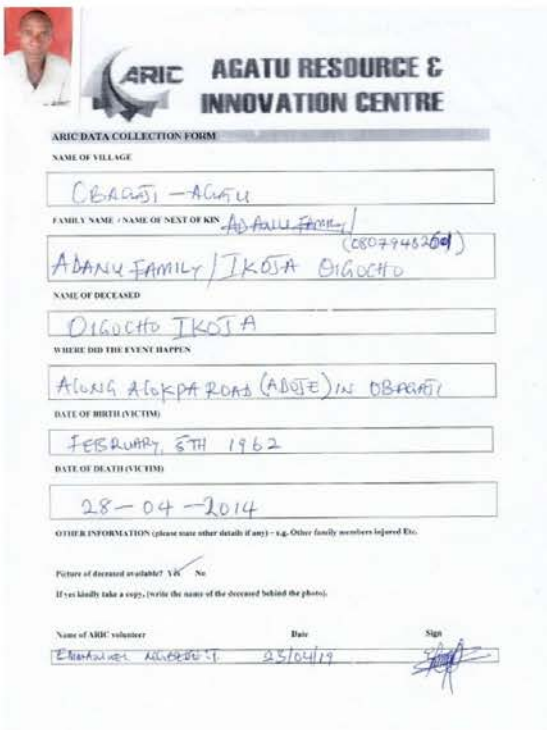 ARIC AGATU RESOURCE &
INNOVATION CENTRE
ARIC DATA COLLECTION FORM
NAME OF VILLAGE
OBAGAJI - AGATU
FAMILY NAME / NAME OF NEXT OF KIN ADANU FAMILY/
ADANU FAMILY / IKOJA OIGOCHO
NAME OF DECEASED
OIGOCHO IKOJA
WHERE DID THE EVENT HAPPEN
ALONG ALOKPA ROAD (ABOJE) IN OBAGAJI
DATE OF BIRTH (VICTIM)
FEBRUARY, 5TH 1962
DATE OF DEATH (VICTIM)
28-04-2014
OTHER INFORMATION (please state other details if any) – e.g. Other family members injured Etc.
Picture of deceased available? Yes No
If yes kindly take a copy, (write the name of the deceased behind the photo).
Name of ARIC volunteer Date Sign
EMMANUEL 23/04/19